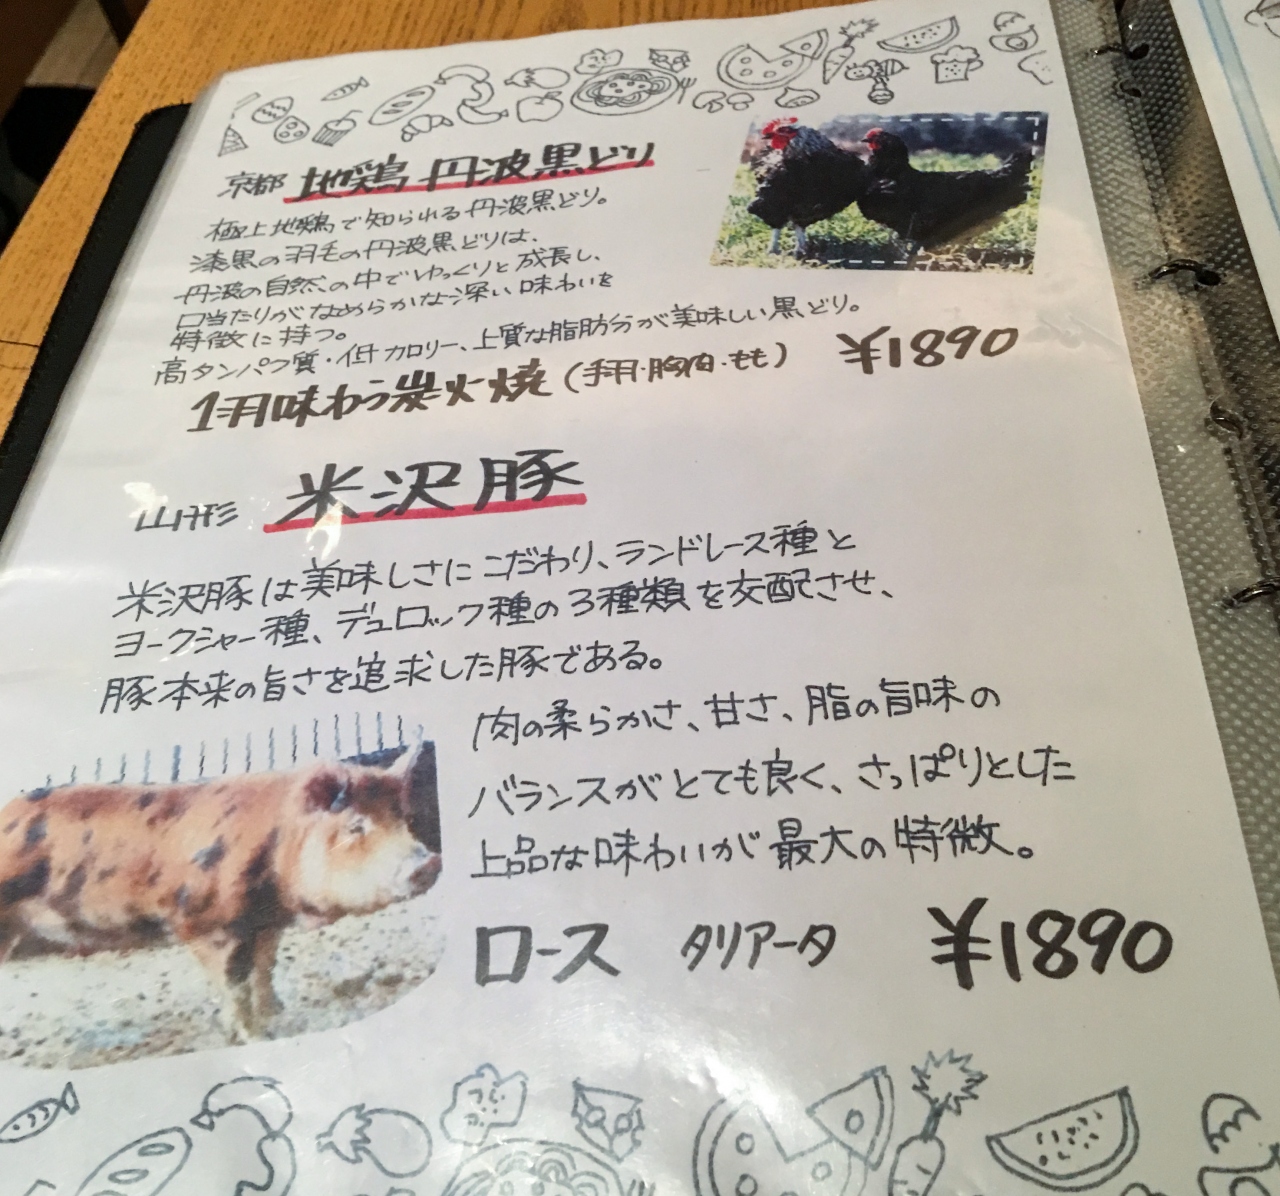 京都 地鶏 丹波黒どり
極上地鶏で知られる丹波黒どり。
漆黒の羽毛の丹波黒どりは、
丹波の自然の中でゆっくりと成長し、
口当たりがなめらかな深い味わいを
特徴に持つ。
高タンパク質・低カロリー、上質な脂肪分が美味しい黒どり。
1羽味わう炭火焼(手羽・胸肉・もも) ¥1890
山形 米沢豚
米沢豚は美味しさにこだわり、ランドレース種と
ヨークシャー種、デュロック種の3種類を交配させ、
豚本来の旨さを追求した豚である。
肉の柔らかさ、甘さ、脂の旨味の
バランスがとても良く、さっぱりとした
上品な味わいが最大の特徴。
ロース タリアータ ¥1890